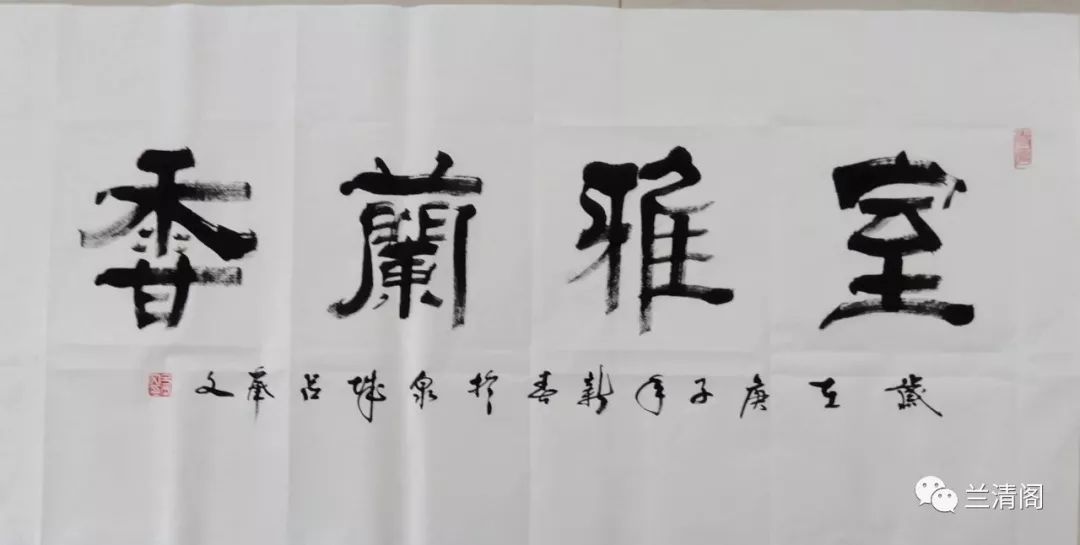 室雅蘭香
歲在庚子年新春於泉城吕文
兰清阁